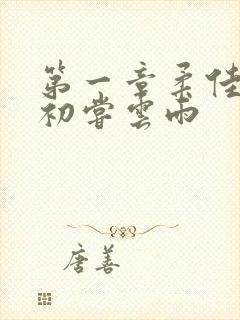 第一章柔佳
初嘗雲雨
唐善